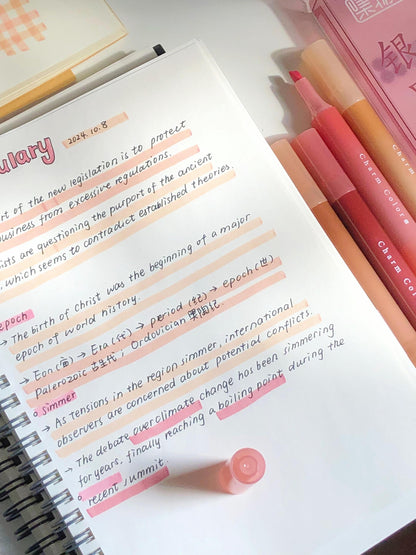 ulary
2024.10.8
rt of the new legislation is to protect
usiness from excessive regulations.
ists are questioning the purport of the ancient
, which seems to contradict established theories.
epoch
→ The birth of christ was the beginning of a major
epoch of world history.
→ Eon (宙) → Era (代) → period (纪) → epoch (世)
Palerozoic 古生代 ; Ordovician 奥陶纪
simmer
→ As tensions in the region simmer, international
observers are concerned about potential conflicts.
→ The debate over climate change has been simmering
for years, finally reaching a boiling point during the
recent summit
Charm Color
Charm Color
Charm Color
銀